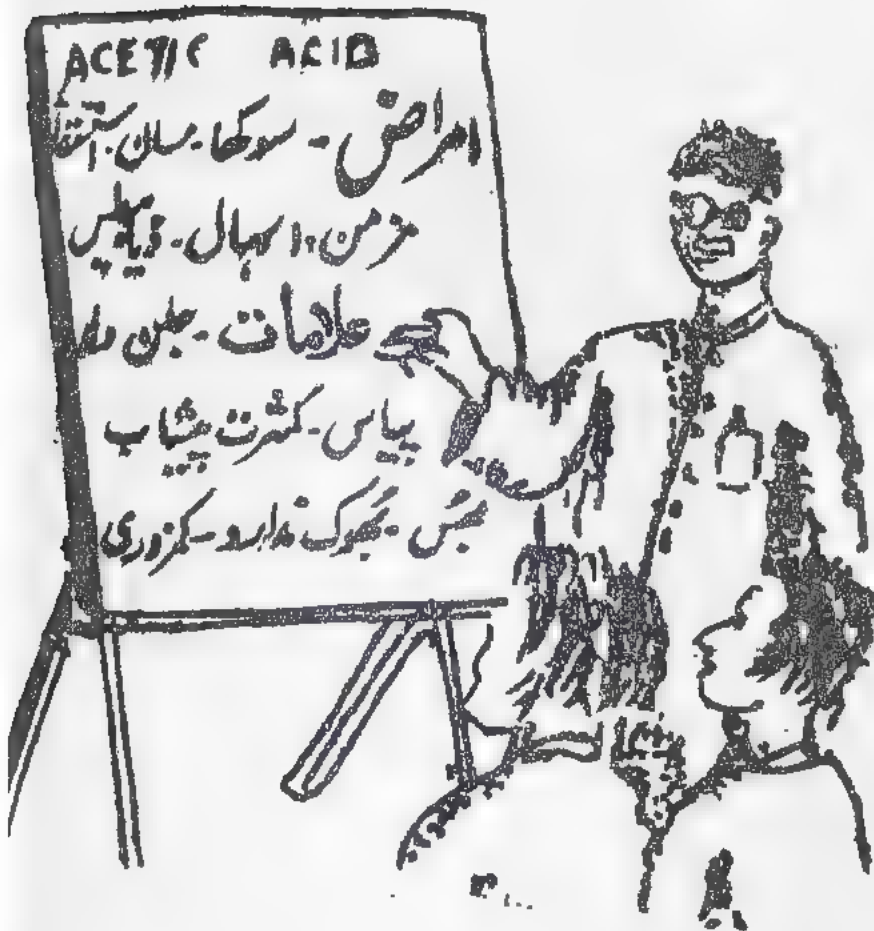 ACETIC ACID
امراض - سوکھا - مسان - استسقاء
مزمن - اسہال - ذیابیطس
علامات - جلن دار
پیاس - کثرت پیشاب
بھوک ندارد - کمزوری